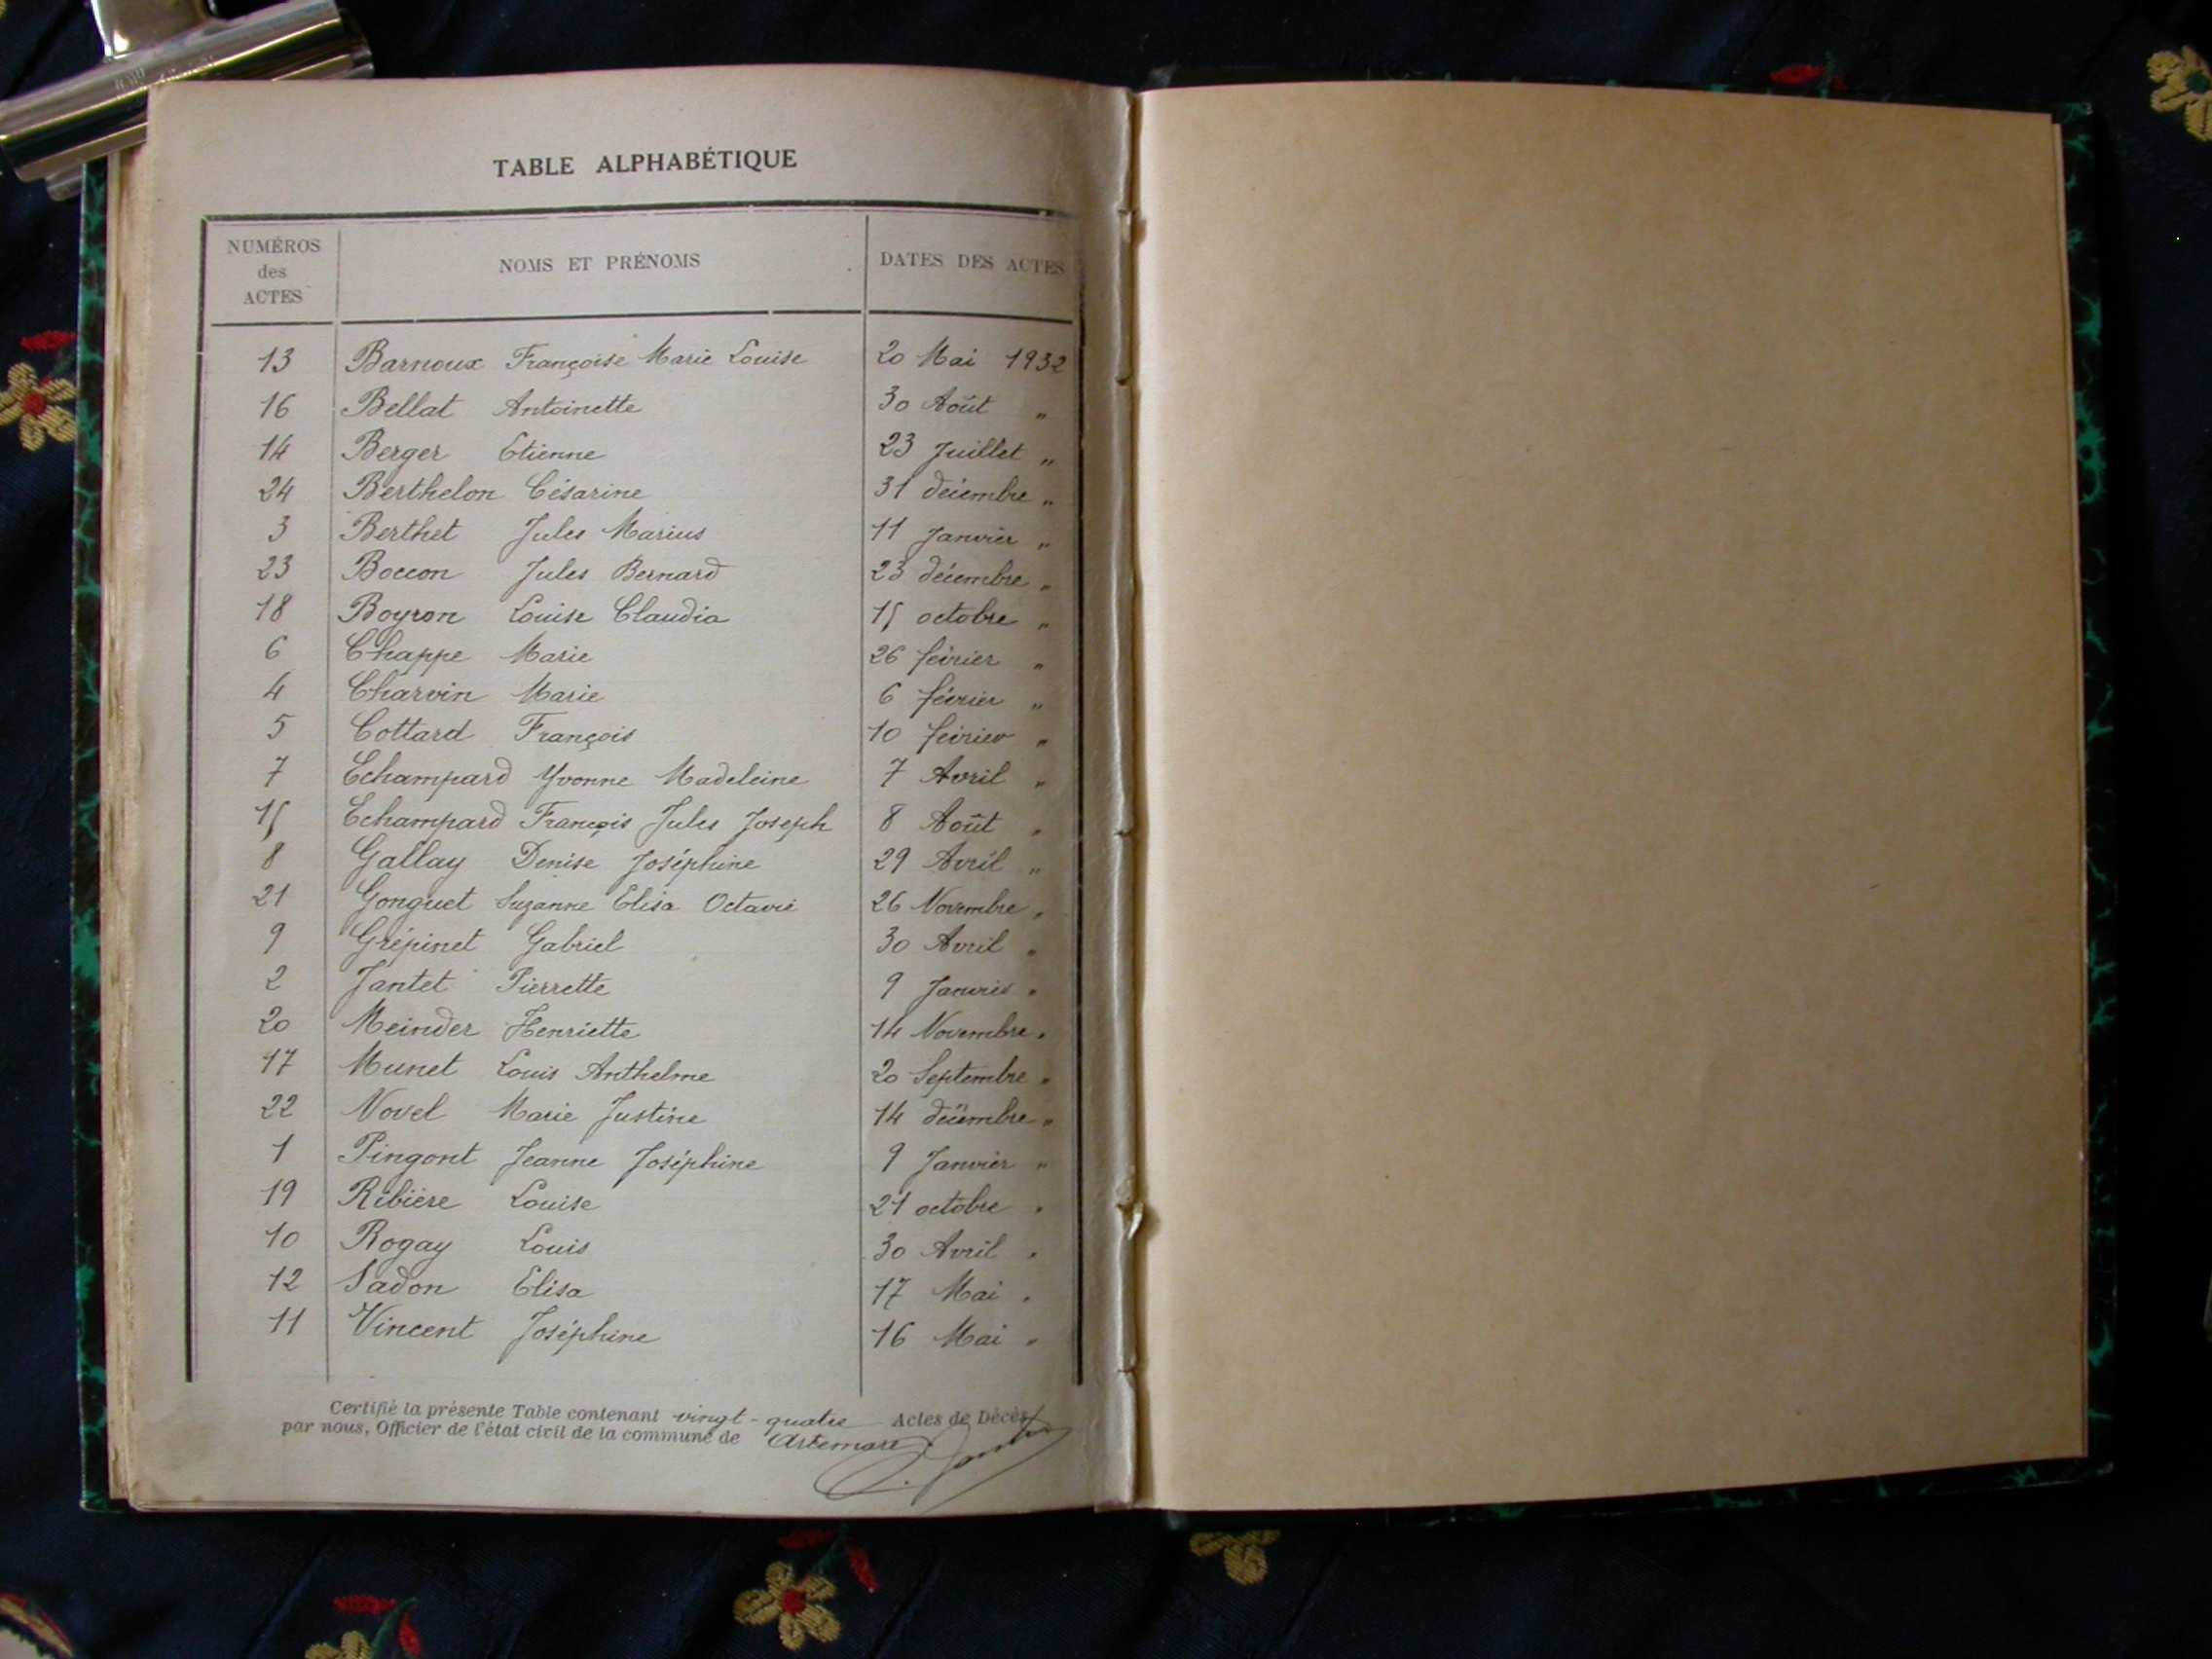 TABLE ALPHABÉTIQUE
NUMÉROS des ACTES NOMS ET PRÉNOMS DATES DES ACTES
13 Barnoux Françoise Marie Louise 20 Mai 1932
16 Bellat Antoinette 30 Août "
14 Berger Etienne 23 Juillet "
24 Berthelon Césarine 31 décembre "
3 Berthet Jules Marius 11 Janvier "
23 Boccon Jules Bernard 23 décembre "
18 Boyron Louise Claudia 15 octobre "
6 Chappe Marie 26 février "
4 Charvin Marie 6 février "
5 Cottard François 10 février "
7 Echampard Yvonne Madeleine 7 Avril "
15 Echampard François Jules Joseph 8 Août "
8 Gallay Denise Joséphine 29 Avril "
21 Gonguet Suzanne Elisa Octavie 26 Novembre "
9 Grépinet Gabriel 30 Avril "
2 Jantet Pierrette 9 Janvier "
20 Meinder Henriette 14 Novembre "
17 Munet Louis Anthelme 20 Septembre "
22 Novel Marie Justine 14 décembre "
1 Pingont Jeanne Joséphine 9 Janvier "
19 Ribière Louise 21 octobre "
10 Rogay Louis 30 Avril "
12 Sadon Elisa 17 Mai "
11 Vincent Joséphine 16 Mai "
Certifié la présente Table contenant vingt-quatre Actes de Décès
par nous, Officier de l'état civil de la commune de Artemare